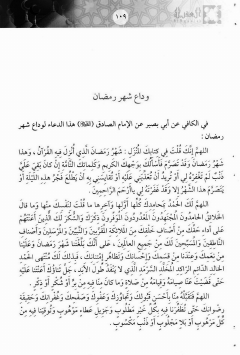 ١٠٩
وداع شهر رمضان
في الكافي عن أبي بصير عن الإمام الصادق (عليه السلام) هذا الدعاء لوداع شهر
رمضان:
اللهم إنك قلت في كتابك المنزل: شهر رمضان الذي أنزل فيه القرآن، وهذا
شهر رمضان وقد تصرم فأسألك بوجهك الكريم وكلماتك التامة إن كان بقي علي
ذنب لم تغفره لي أو تريد أن تعذبني عليه أو تقايسني به أن يطلع فجر هذه الليلة أو
يتصرم هذا الشهر إلا وقد غفرته لي يا أرحم الراحمين.
اللهم لك الحمد بمحامدك كلها أولها وآخرها ما قلت لنفسك منها وما قال
الخلائق الحامدون المجتهدون المعدودون الموقرون ذكرك والشكر لك الذين أعنتهم
على أداء حقك من أصناف خلقك من الملائكة المقربين والنبيين والمرسلين وأصناف
الناطقين والمسبحين لك من جميع العالمين، على أنك بلغتنا شهر رمضان وعلينا
من نعمك وعندنا من قسمك وإحسانك وتظاهر امتنانك، فبذلك لك منتهى الحمد
الخالد الدائم الراكد المخلد السرمد الذي لا ينفد طول الأبد، جل ثناؤك أعنتنا عليه
حتى قضيت عنا صيامه وقيامه من صلاة وما كان منا فيه من بر أو شكر أو ذكر.
اللهم فتقبله منا بأحسن قبولك وتجاوزك وعفوك وصفحك وغفرانك وحقيقة
رضوانك حتى تظفرنا فيه بكل خير مطلوب وجزيل عطاء موهوب وتوقينا فيه من
كل مرهوب أو بلاء مجلوب أو ذنب مكسوب.